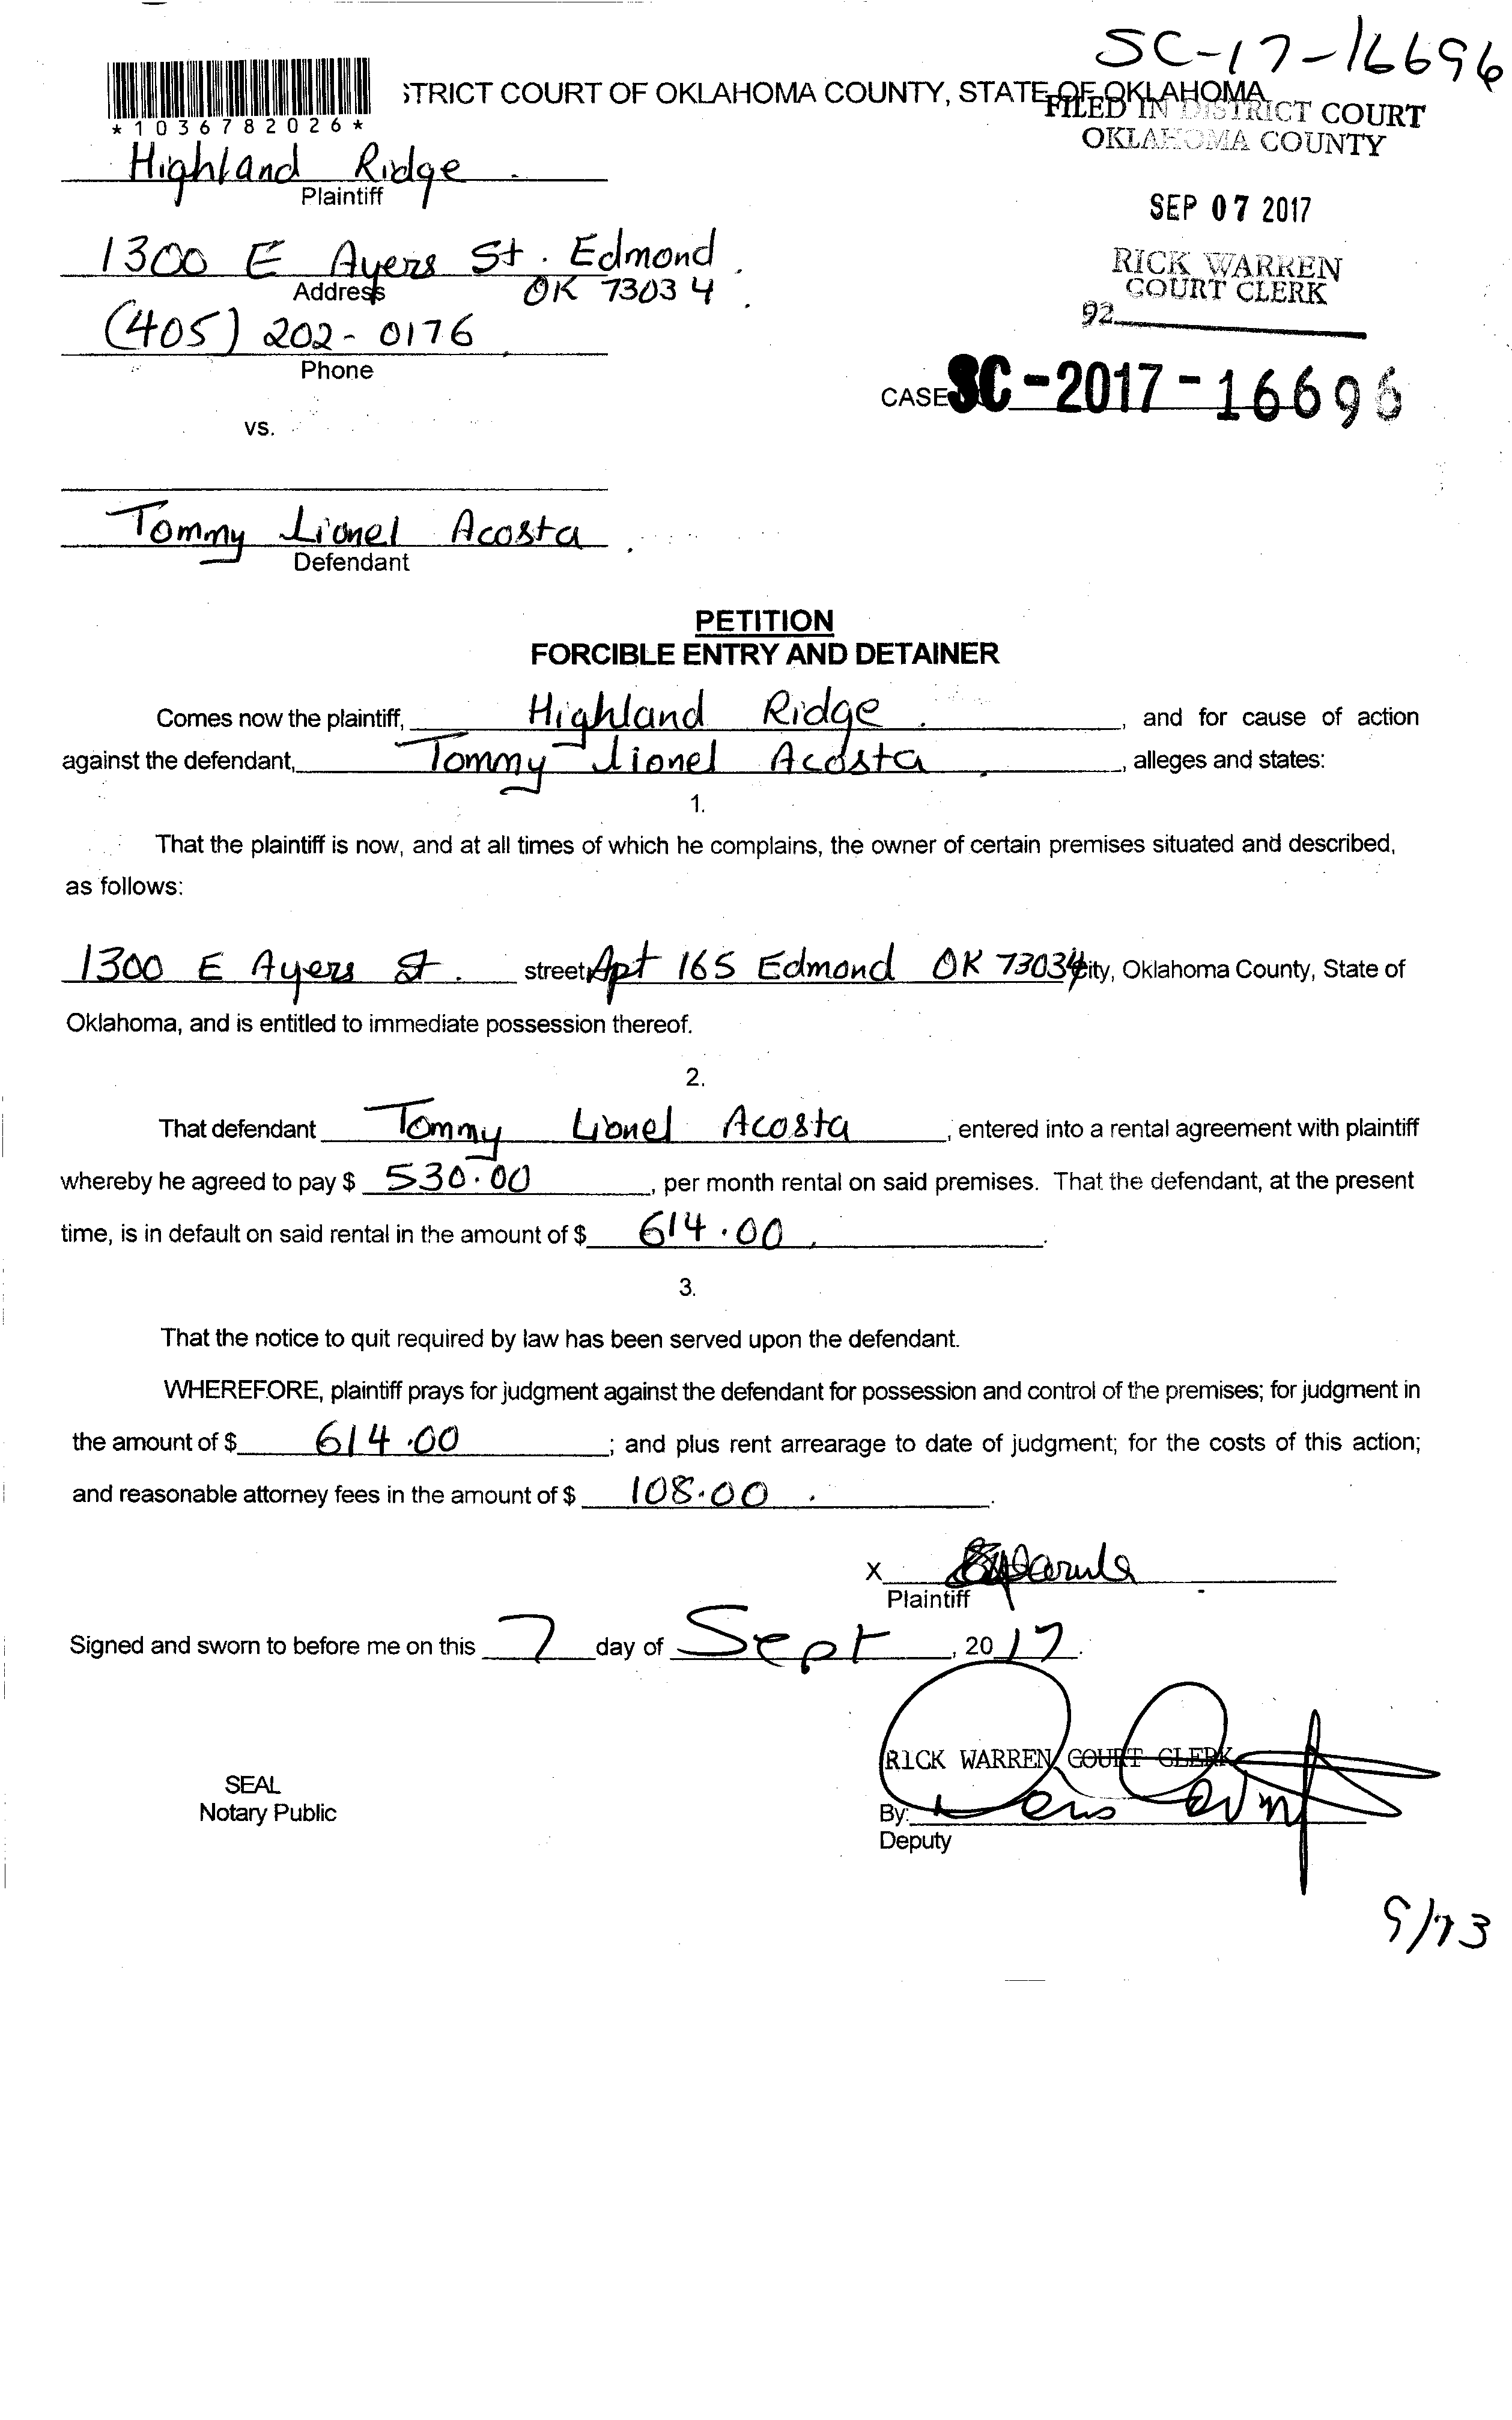 SC-17-16696
STRICT COURT OF OKLAHOMA COUNTY, STATE OF OKLAHOMA
FILED IN DISTRICT COURT
OKLAHOMA COUNTY
*1036782026*
Highland Ridge
Plaintiff
SEP 07 2017
1300 E Ayers St. Edmond
Address OK 73034
RICK WARREN
COURT CLERK
92
(405) 202-0176
Phone
CASE SC-2017-16696
vs.
Tommy Lionel Acosta
Defendant
PETITION
FORCIBLE ENTRY AND DETAINER
Comes now the plaintiff, Highland Ridge, and for cause of action
against the defendant, Tommy Lionel Acosta, alleges and states:
1.
That the plaintiff is now, and at all times of which he complains, the owner of certain premises situated and described,
as follows:
1300 E Ayers St. street, Apt 165 Edmond OK 73034 city, Oklahoma County, State of
Oklahoma, and is entitled to immediate possession thereof.
2.
That defendant Tommy Lionel Acosta, entered into a rental agreement with plaintiff
whereby he agreed to pay $ 530.00, per month rental on said premises. That the defendant, at the present
time, is in default on said rental in the amount of $ 614.00.
3.
That the notice to quit required by law has been served upon the defendant.
WHEREFORE, plaintiff prays for judgment against the defendant for possession and control of the premises; for judgment in
the amount of $ 614.00; and plus rent arrearage to date of judgment; for the costs of this action;
and reasonable attorney fees in the amount of $ 108.00.
X
Plaintiff
Signed and sworn to before me on this 7 day of Sept, 2017.
RICK WARREN, COURT CLERK
SEAL
Notary Public
By:
Deputy